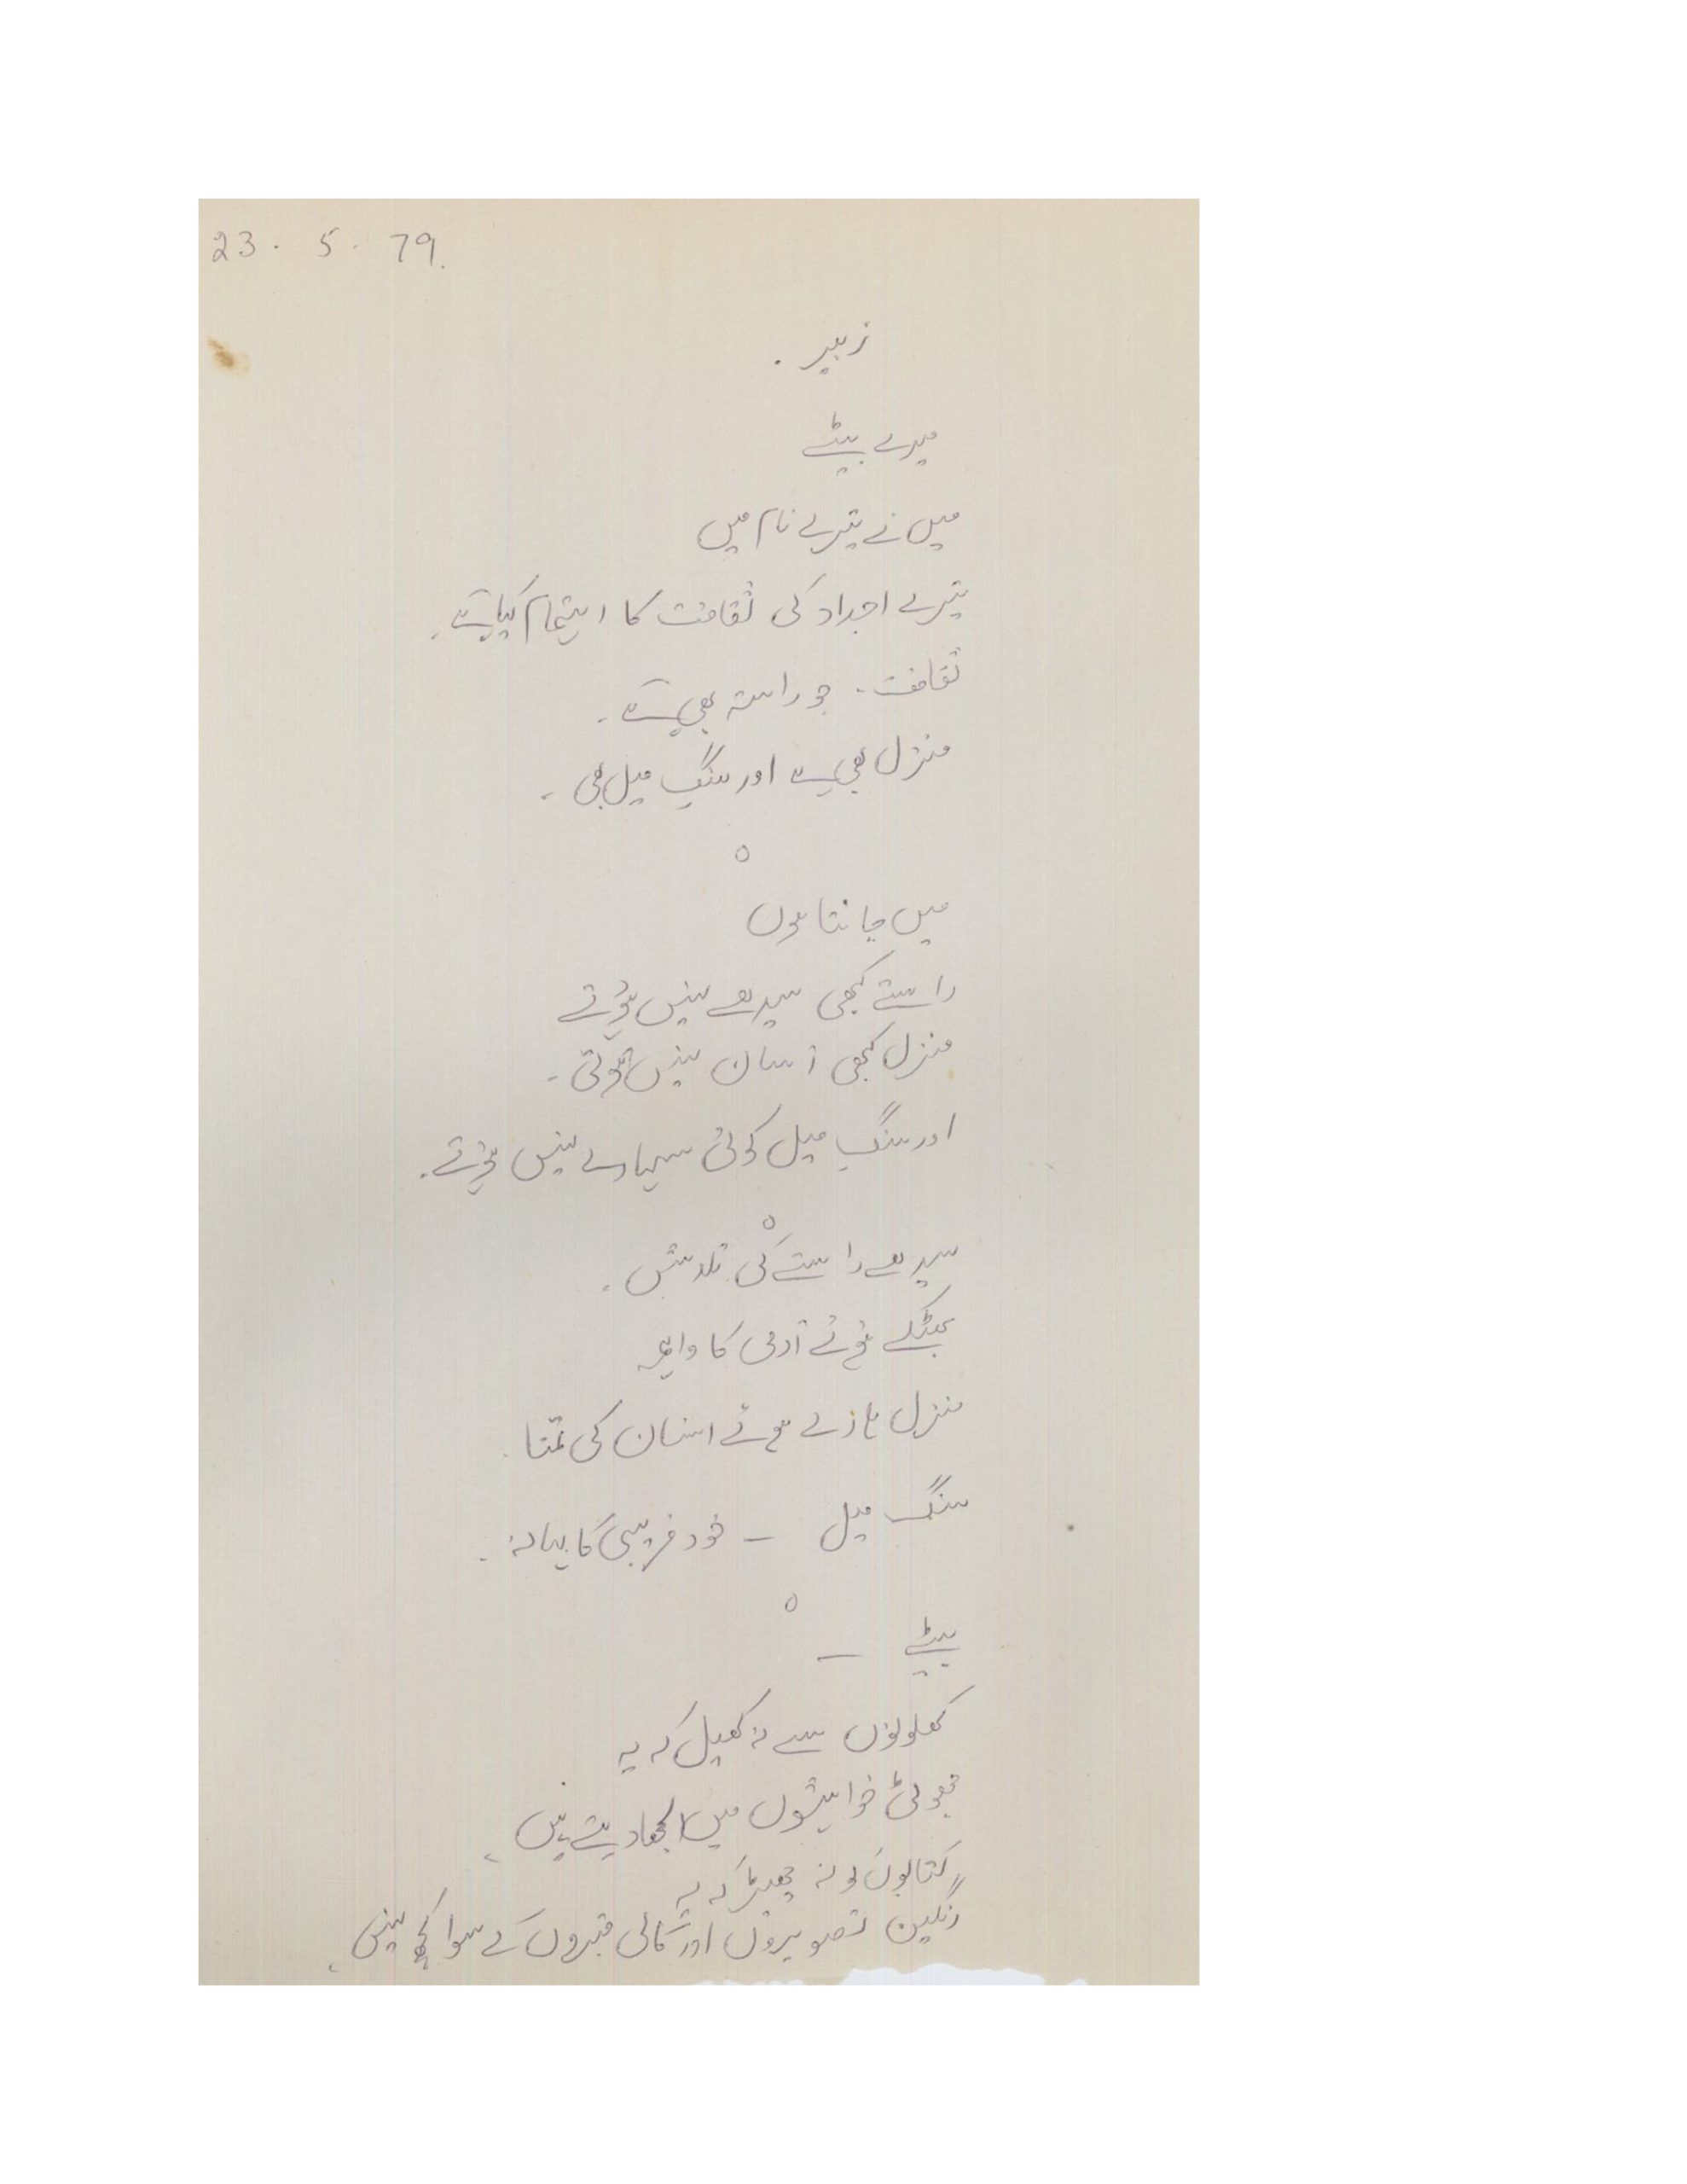 23. 5. 79.
زبیر.
میرے بیٹے
میں نے تیرے نام میں
تیرے اجداد کی ثقافت کا اہتمام کیا ہے۔
ثقافت۔ جو راستہ بھی ہے۔
منزل بھی ہے اور سنگِ میل بھی۔
ہ
میں جانتا ہوں
راستے کبھی سیدھے نہیں ہوتے
منزل کبھی آسان نہیں ہوتی۔
اور سنگِ میل کوئی سہارے نہیں ہوتے۔
ہ
سیدھے راستے کی تلاش۔
بھٹکے ہوئے آدمی کا واہمہ
منزل ہارے ہوئے انسان کی تمنا۔
سنگ میل – خود فریبی کا بہانہ۔
ہ
بیٹے –
کھلونوں سے نہ کھیل کہ یہ
جھوٹی خواہشوں میں الجھا دیتے ہیں۔
کتابوں کو نہ چھیڑ کہ یہ
رنگین تصویروں اور کالی قبروں کے سوا کچھ نہیں۔